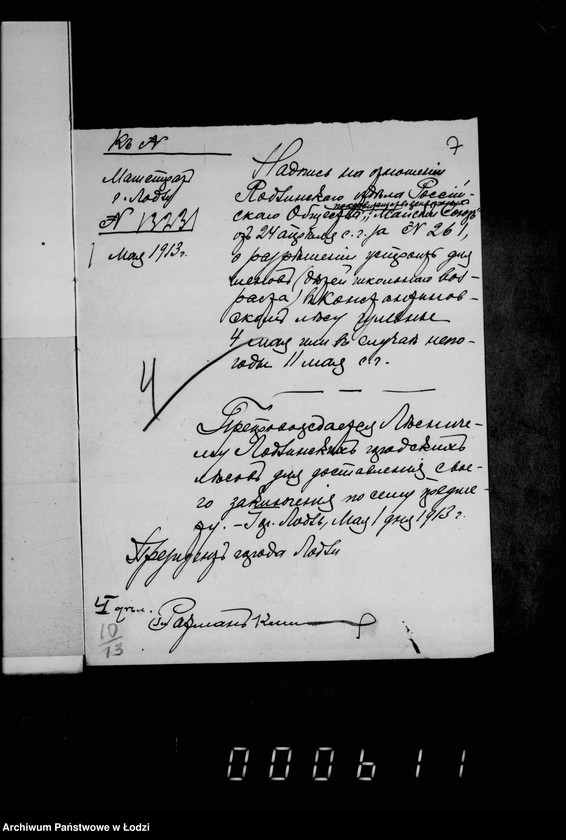 Къ №
7
Магистрат
г. Лодзи
№ 13231
Мая 1913 г.
Надпись на отношении
Лодзинского отдѣла Россій-
покровительства животных
скаго Общества „Майскій Союзъ"
отъ 24 апрѣля с. г. за № 261,
о разрѣшеніи устроить для
членов (дѣтей школьнаго воз-
раста) в Константинов-
скомъ лѣсу гулянье
4 мая или в случаѣ непо-
годы 11 мая с. г.
4
Препровождается Лѣсниче-
му Лодзинскихъ городскихъ
лѣсовъ для доставленія свое-
го заключенія по сему предме-
ту. – Гор. Лодзь, Мая 1 дня 1913 г.
Президентъ города Лодзи
I отл.
10
13
000611
Archiwum Państwowe w Łodzi